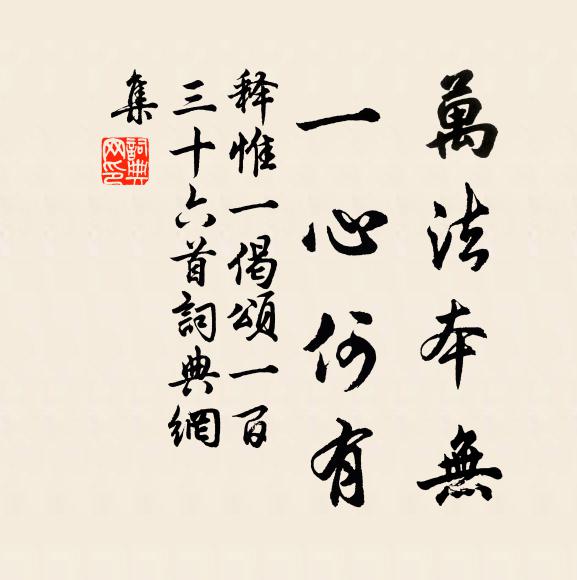 萬法本無
一心何有
释惟一偈頌一百
三十六首詞典網
集
詞典
网印